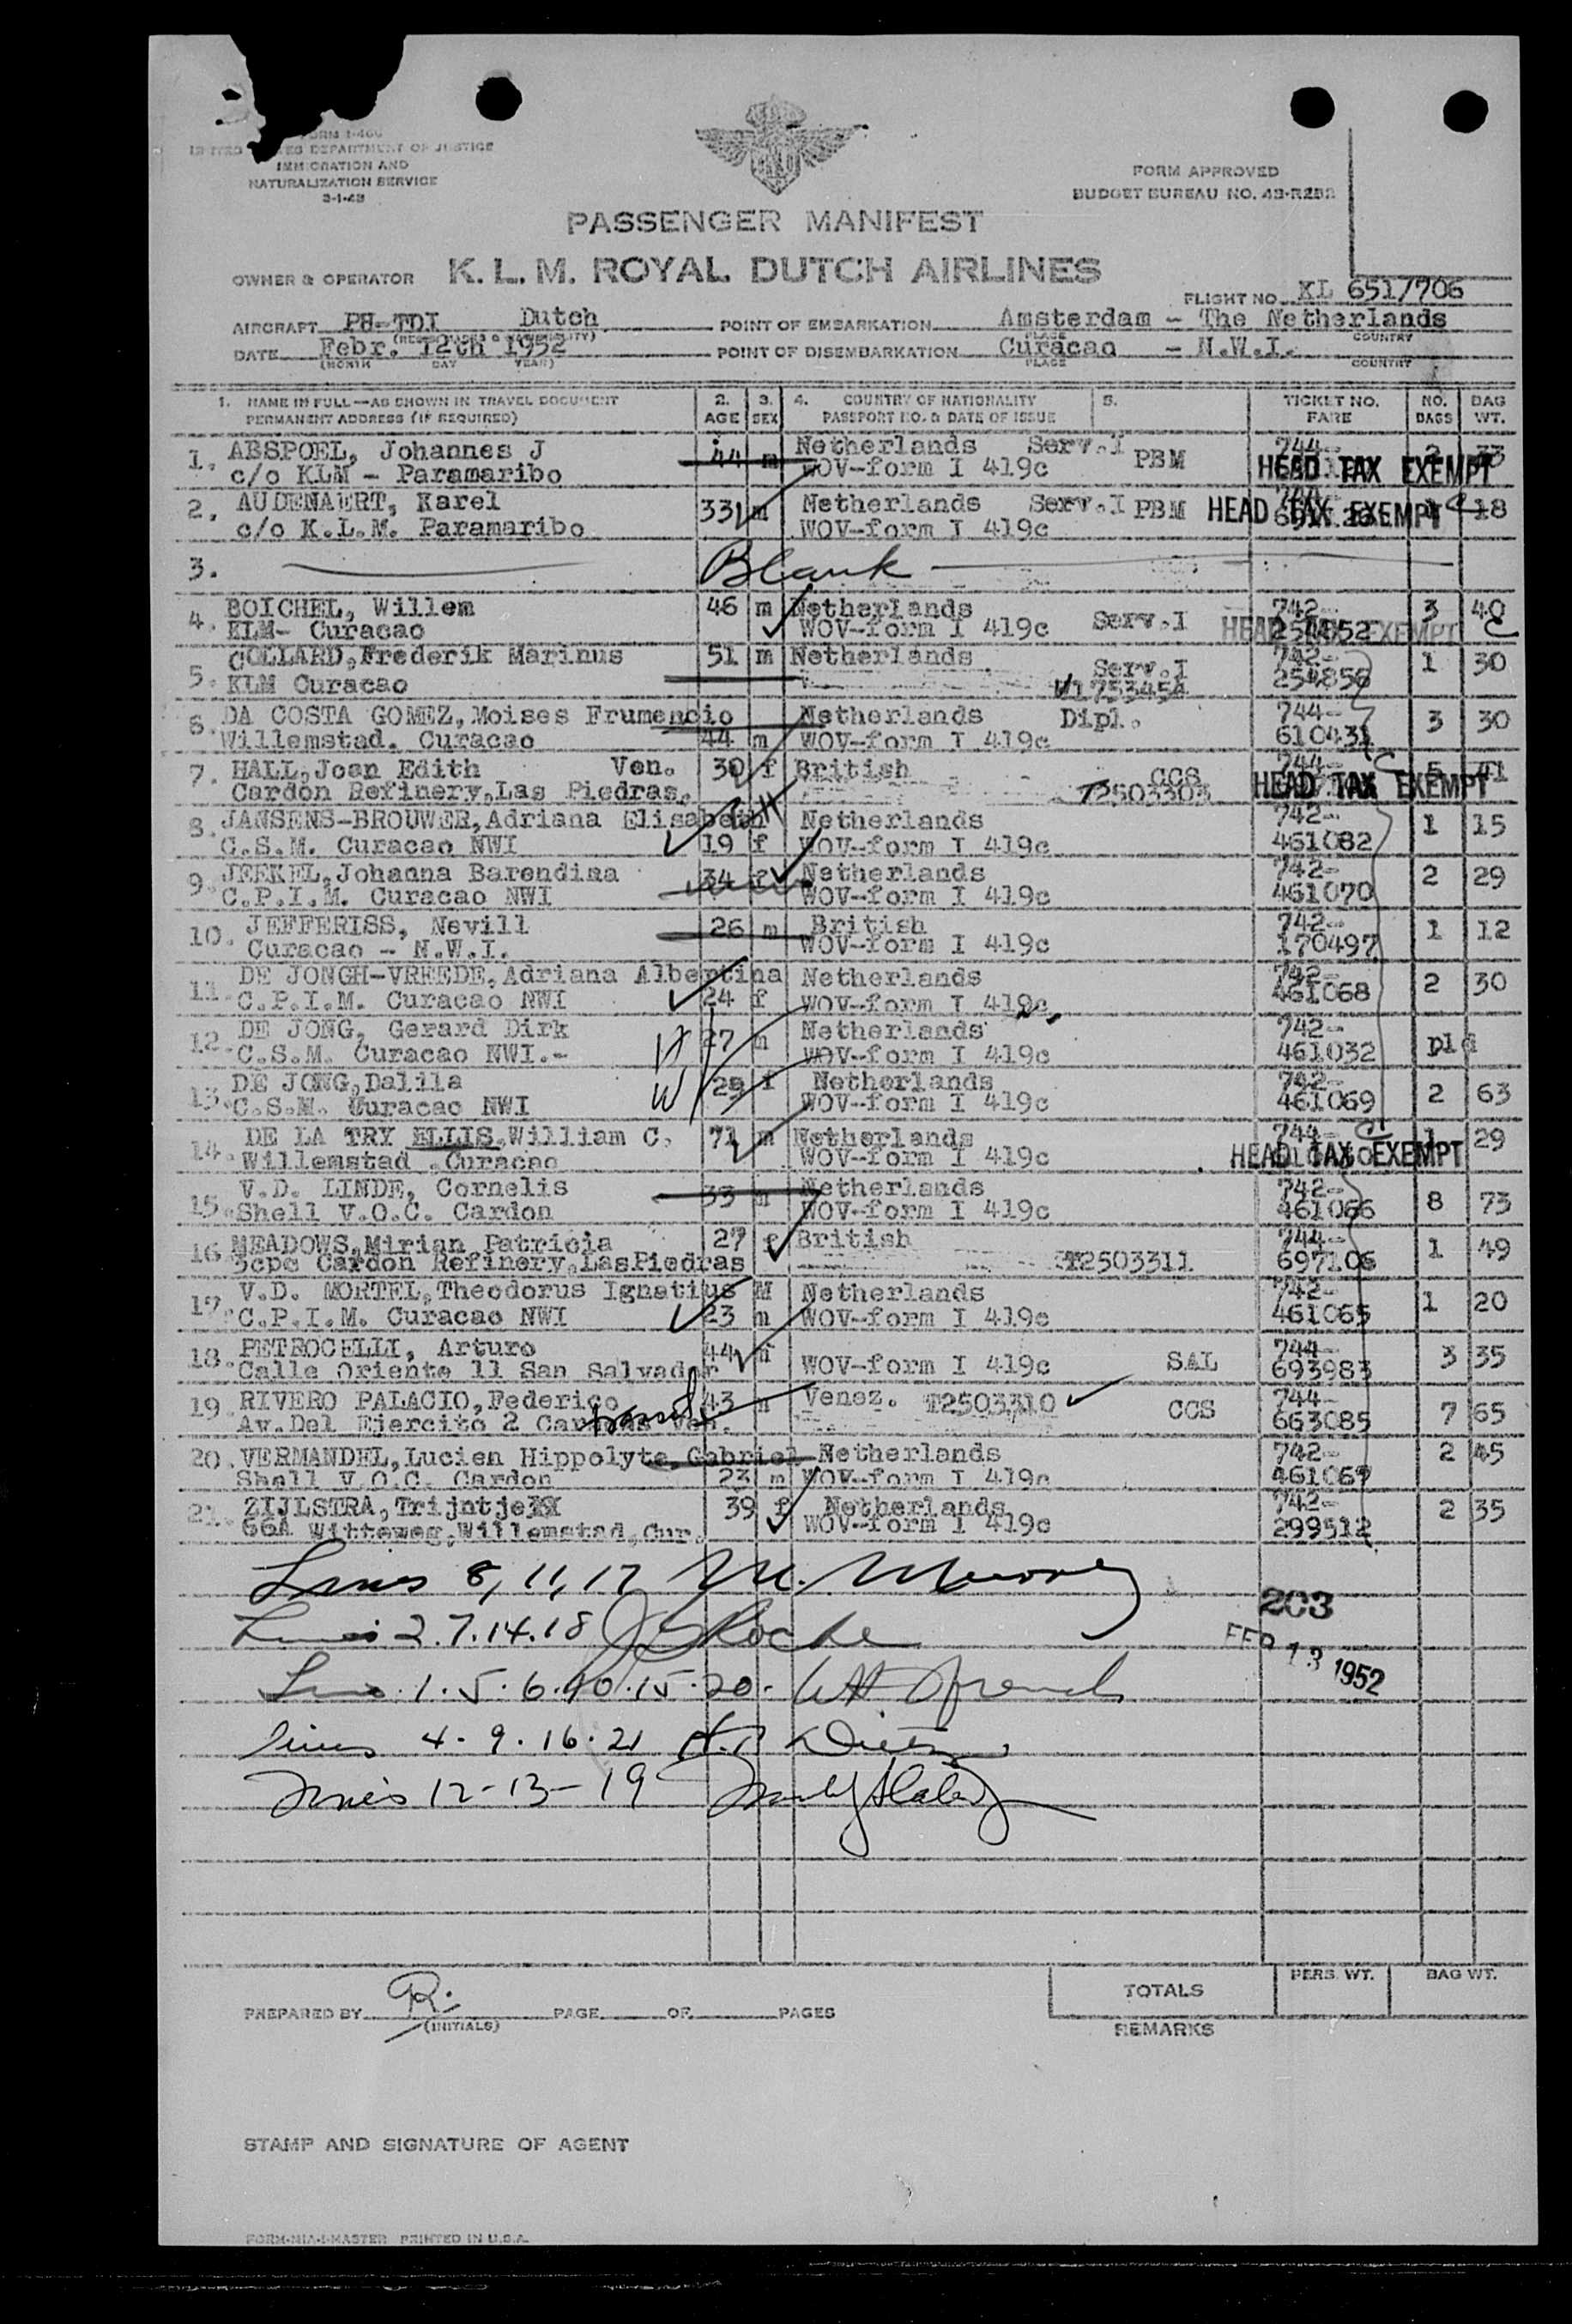 FORM I-466
UNITED STATES DEPARTMENT OF JUSTICE
IMMIGRATION AND
NATURALIZATION SERVICE
FORM APPROVED
BUDGET BUREAU NO. 43-R252
PASSENGER MANIFEST
OWNER & OPERATOR K. L. M. ROYAL DUTCH AIRLINES
FLIGHT NO. KL 651/706
AIRCRAFT PH-TDI Dutch POINT OF EMBARKATION Amsterdam - The Netherlands
DATE Febr. 12th 1952 POINT OF DISEMBARKATION Curacao - N.W.I.
(MONTH DAY YEAR) PLACE COUNTRY
1. NAME IN FULL—AS SHOWN IN TRAVEL DOCUMENT 2. 3. 4. COUNTRY OF NATIONALITY 5. TICKET NO. NO. BAG
PERMANENT ADDRESS (IF REQUIRED) AGE SEX PASSPORT NO. & DATE OF ISSUE FARE BAGS WT.
1. ABSPOEL, Johannes J 44 m Netherlands Serv.I PBM 744- 2 33
c/o KLM - Paramaribo WOV-form I 419c HEAD TAX EXEMPT
2. AUDENAERT, Karel 33 m Netherlands Serv.I PBM HEAD TAX EXEMPT 18
c/o K.L.M. Paramaribo WOV-form I 419c
3. Blank
4. BOICHEL, Willem 46 m Netherlands Serv.I 742- 3 40
KLM- Curacao WOV-form I 419c HEAD TAX EXEMPT 254852
5. COLLARD, Frederik Marinus 51 m Netherlands Serv.I 742- 1 30
KLM Curacao V1753454 254856
6. DA COSTA GOMEZ, Moises Frumencio Netherlands Dipl. 744- 3 30
Willemstad. Curacao 44 m WOV-form I 419c 610431
7. HALL, Joan Edith Ven. 30 f British CCS 744- 5 41
Cardon Refinery, Las Piedras. T2503303 HEAD TAX EXEMPT
8. JANSENS-BROUWER, Adriana Elisabeth Netherlands 742- 1 15
C.S.M. Curacao NWI 19 f WOV-form I 419c 461082
9. JEEKEL, Johanna Barendina 34 f Netherlands 742- 2 29
C.P.I.M. Curacao NWI WOV-form I 419c 461070
10. JEFFERISS, Nevill 26 m British 742- 1 12
Curacao - N.W.I. WOV-form I 419c 170497
11. DE JONGH-VREEDE, Adriana Albertina Netherlands 742- 2 30
C.P.I.M. Curacao NWI 24 f WOV-form I 419c 461068
12. DE JONG, Gerard Dirk H 27 m Netherlands 742- pld
C.S.M. Curacao NWI.- WOV-form I 419c 461032
13. DE JONG, Dalila W 28 f Netherlands 742- 2 63
C.S.M. Curacao NWI WOV-form I 419c 461069
14. DE LA TRY ELLIS, William C. 71 m Netherlands 744- 1 29
Willemstad . Curacao WOV-form I 419c HEAD TAX EXEMPT
15. V.D. LINDE, Cornelis 33 m Netherlands 742- 8 73
Shell V.O.C. Cardon WOV-form I 419c 461066
16. MEADOWS, Mirian Patricia 27 f British 744- 1 49
Cardon Refinery, LasPiedras T2503311 697106
17. V.D. MORTEL, Theodorus Ignatius M Netherlands 742- 1 20
C.P.I.M. Curacao NWI 23 m WOV-form I 419c 461065
18. PETROCELLI, Arturo 44 m SAL 744- 3 35
Calle Oriente 11 San Salvador WOV-form I 419c 693983
19. RIVERO PALACIO, Federico 43 m Venez. T2503310 CCS 744- 7 65
Av.Del Ejercito 2 Caracas Ven. transit 663085
20. VERMANDEL, Lucien Hippolyte, Gabriel Netherlands 742- 2 45
Shell V.O.C. Cardon 23 m WOV-form I 419c 461067
21. ZIJLSTRA, Trijntje 39 f Netherlands 742- 2 35
66A Witteweg, Willemstad, Cur. WOV-form I 419c 299512
Lines 8, 11, 17
203
Lines 2.7.14.18
FEB 13 1952
Lines 1.5.6.10.15.20.
Lines 4-9.16.21
Lines 12-13-19
PERS. WT. BAG WT.
TOTALS
PREPARED BY R. PAGE OF PAGES
(INITIALS)
REMARKS
STAMP AND SIGNATURE OF AGENT
FORM-NIA-I-MASTER PRINTED IN U.S.A.